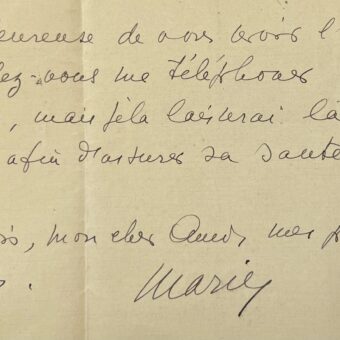 eureuse de vous revoir l'
lez-vous me téléphoner
, mais je la laisserai là
afin d'assurer sa santé
, mon cher Ami, mes
Marie